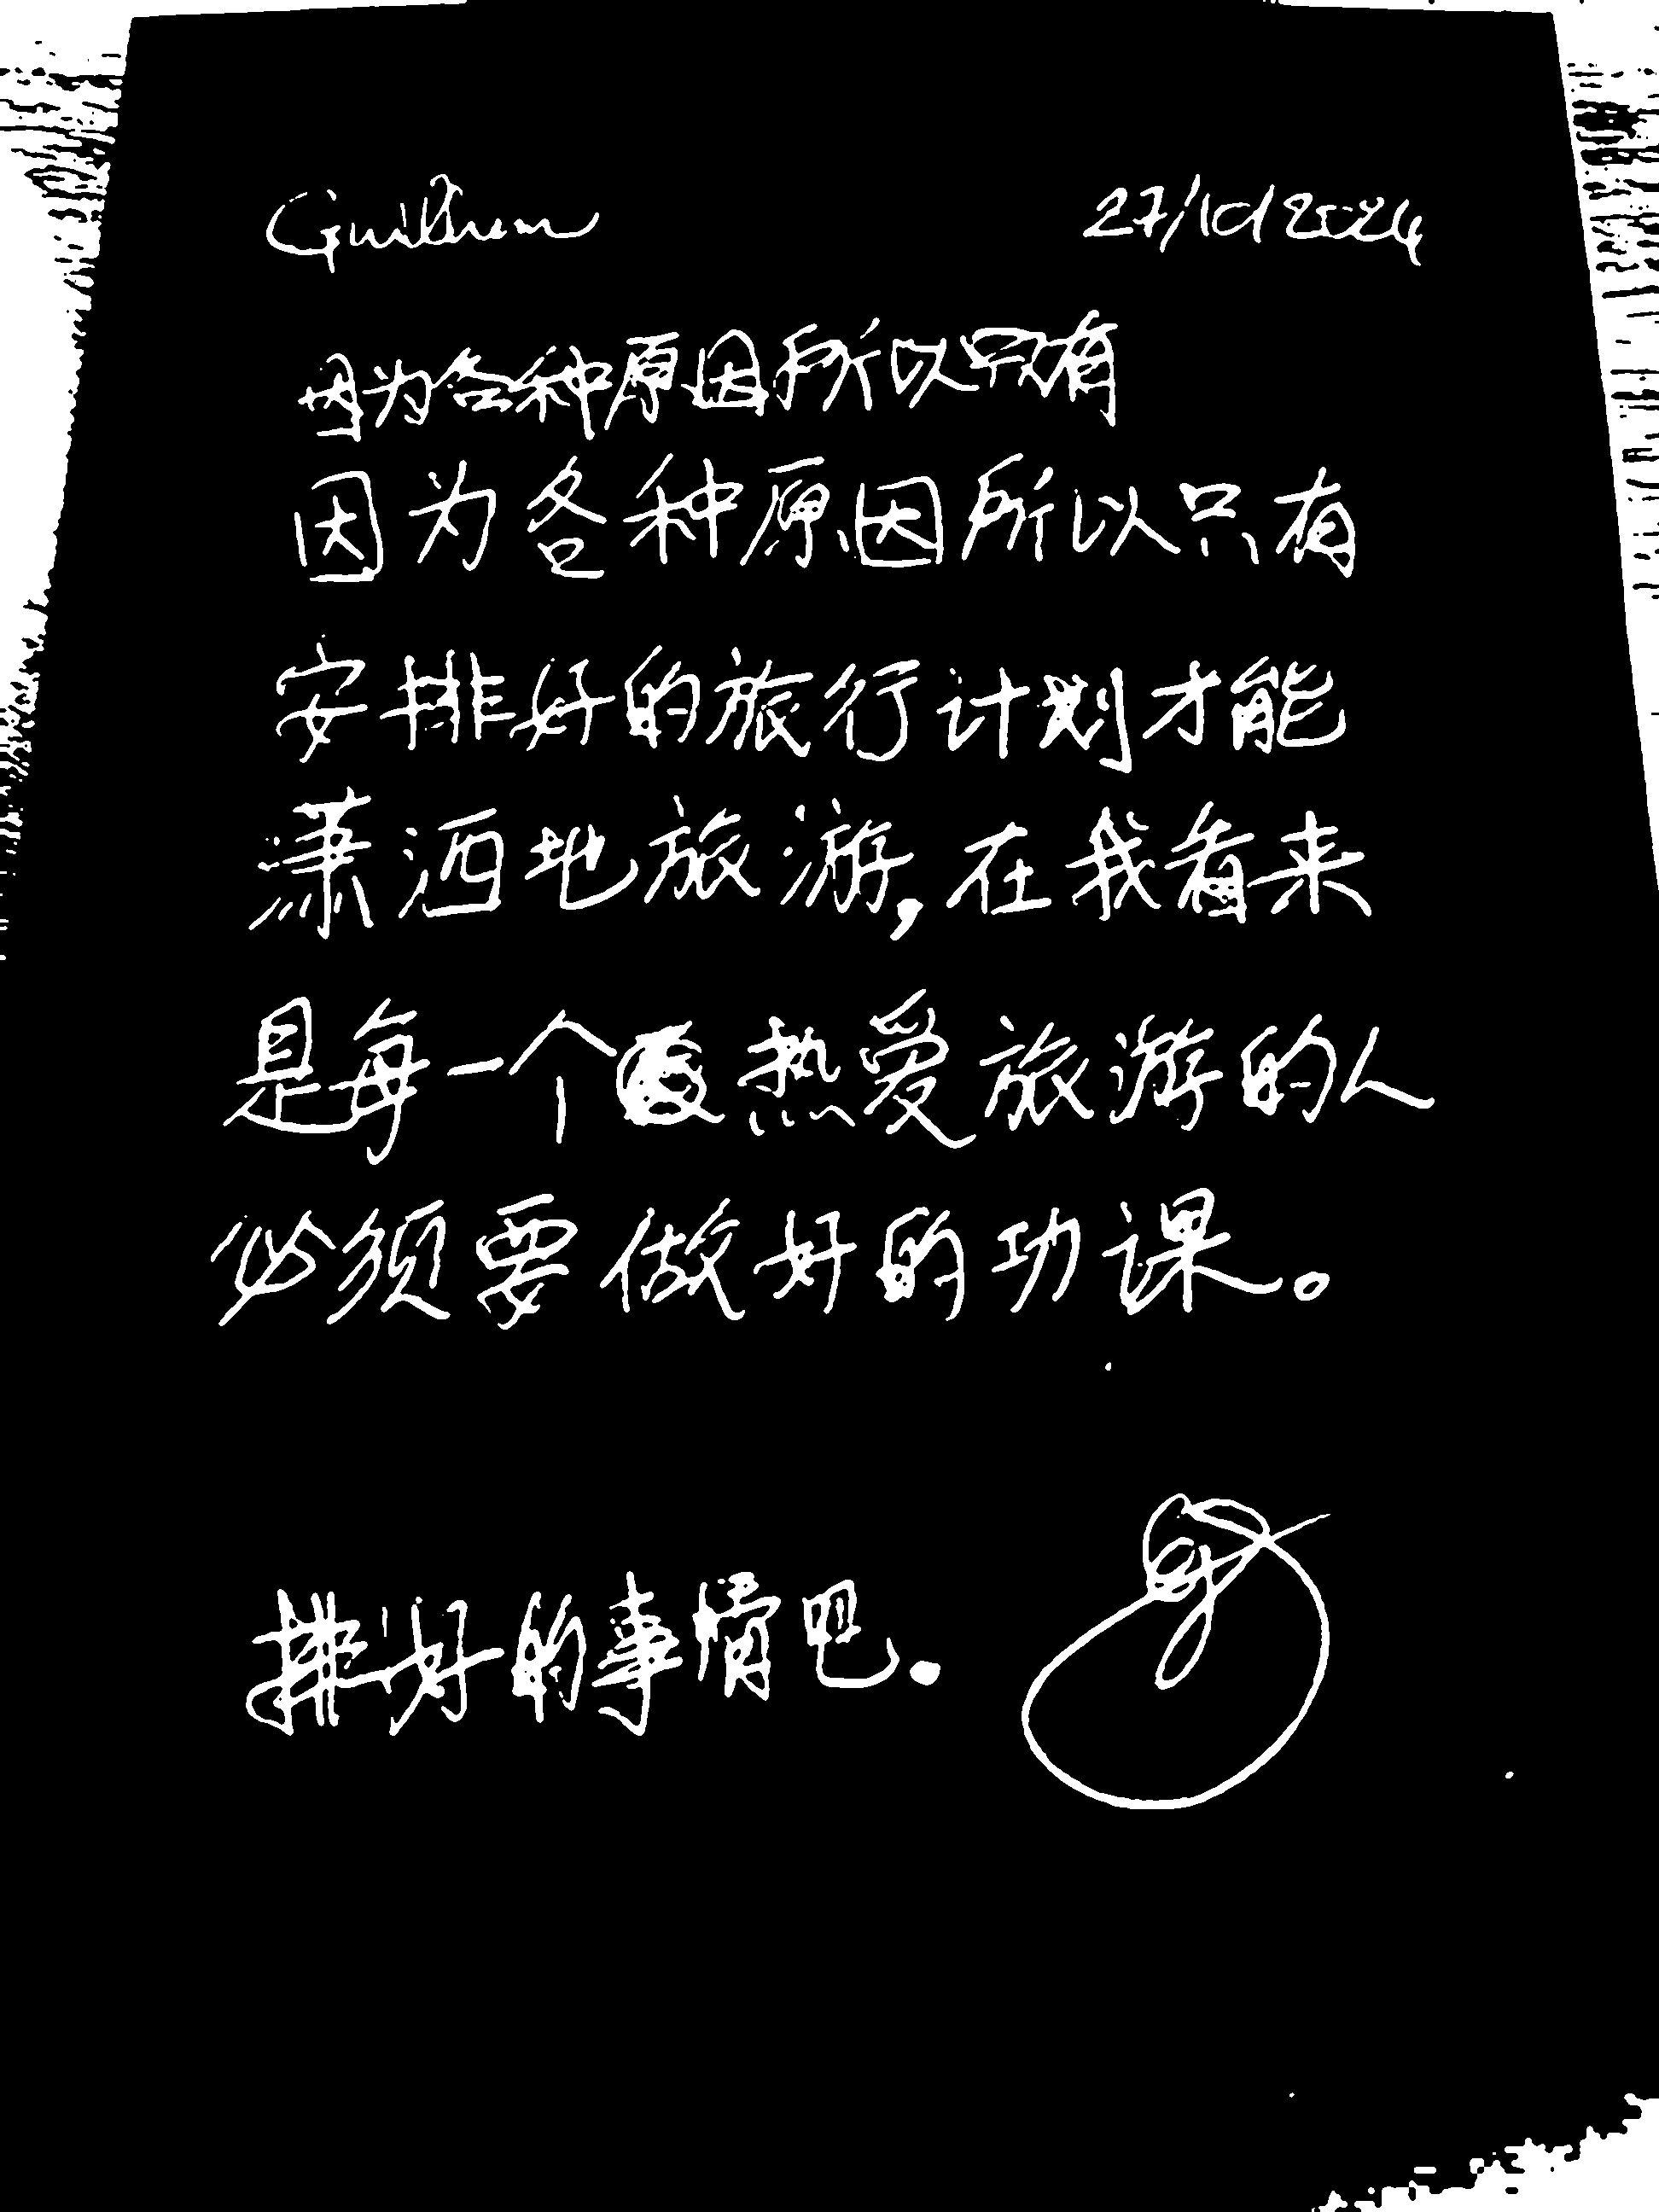 27/10/2024
因为各种原因所以只有
因为各种原因所以只有
安排好的旅行计划才能
潇洒地旅游,在我看来
是每一个热爱旅游的人
必须要做好的功课。
排好的事情吧.